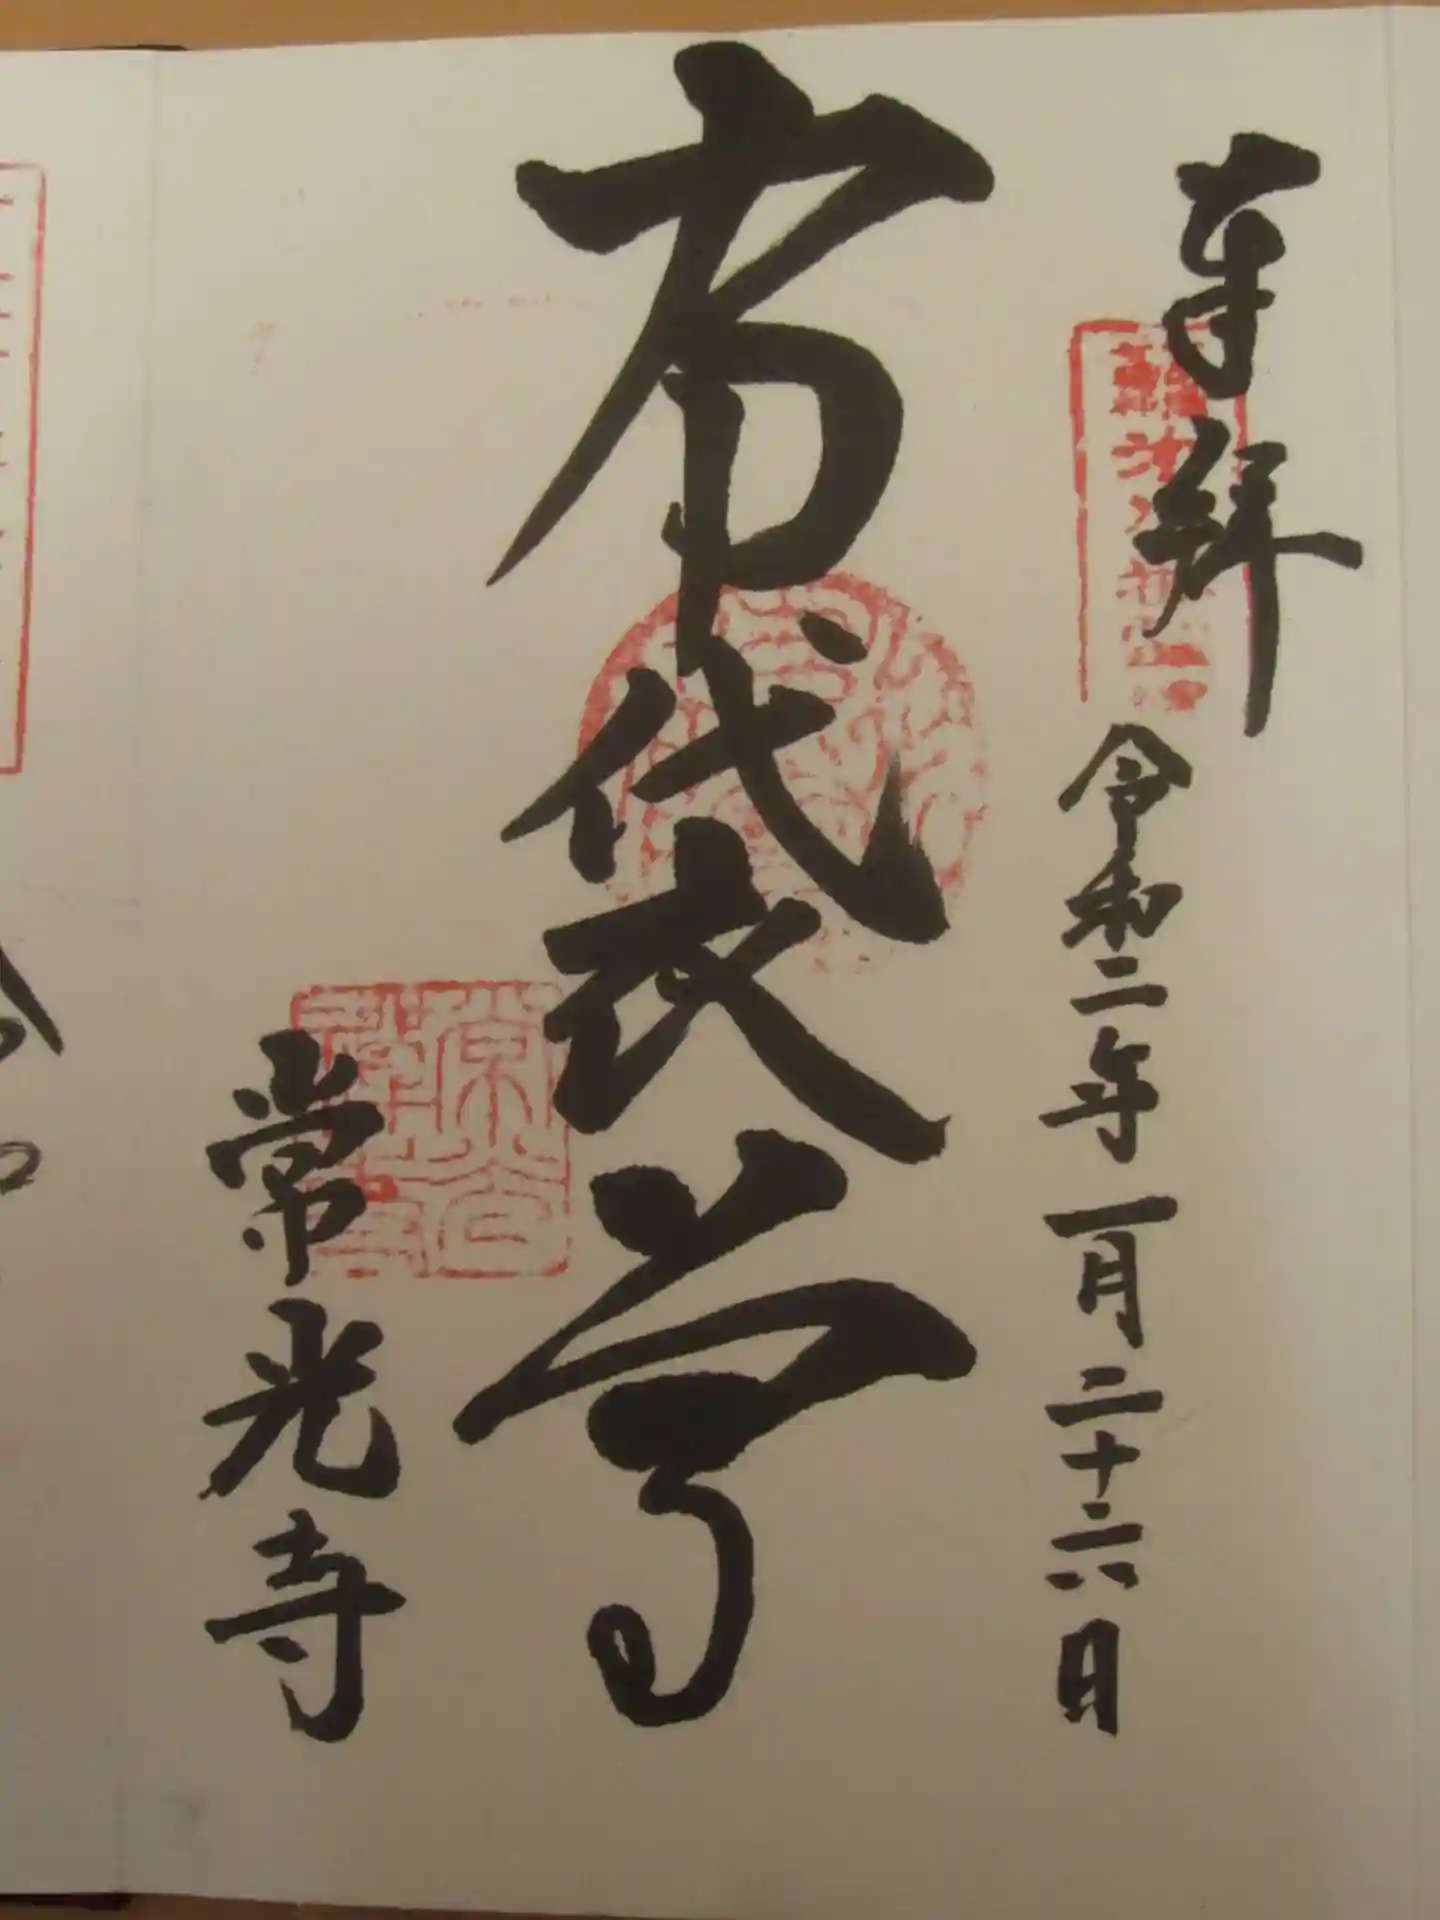 奉拝
令和二年一月二十六日
布袋尊
常光寺